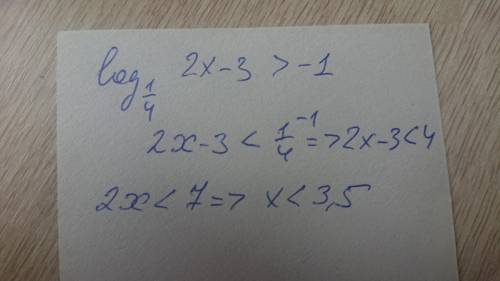 log 1/4 2x-3 > -1
2x-3 < 1/4 ⁻¹ => 2x-3<4
2x < 7 => x < 3,5